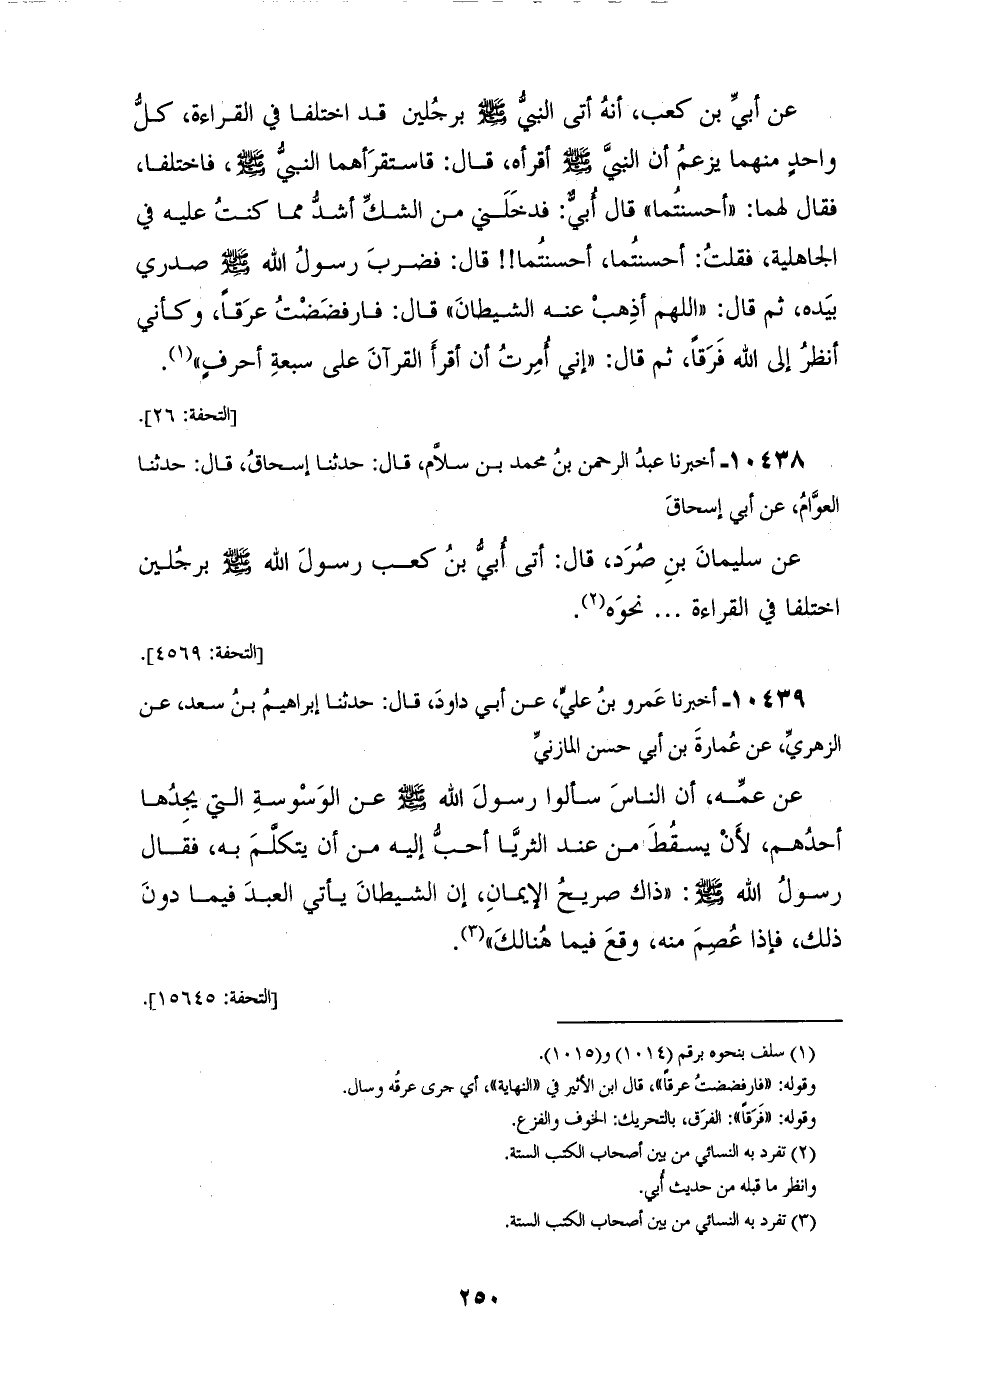 عن أبيِّ بن كعب، أنهُ أتى النبيُّ ﷺ برجُلين قد اختلفا في القراءة، كلُّ
واحدٍ منهما يزعمُ أن النبيَّ ﷺ أقرأه، قال: فاستقرَأهما النبيُّ ﷺ، فاختلفا،
فقال لهما: «أحسنتُما» قال أُبيٌّ: فدخلَني من الشكِّ أشدُّ مما كنتُ عليه في
الجاهلية، فقلتُ: أحسنتُما، أحسنتُما!! قال: فضربَ رسولُ الله ﷺ صدري
بيَده، ثم قال: «اللهم أذهِبْ عنه الشيطانَ» قال: فارفضَضْتُ عرَقاً، وكأني
أنظرُ إلى الله فَرَقاً، ثم قال: «إني أُمِرتُ أن أقرأَ القرآنَ على سبعةِ أحرفٍ»(١).
[التحفة: ٢٦].
١٠٤٣٨ـ أخبرنا عبدُ الرحمن بنُ محمد بن سلاَّم، قال: حدثنا إسحاقُ، قال: حدثنا
العوَّامُ، عن أبي إسحاقَ
عن سليمانَ بنِ صُرَد، قال: أتى أُبيُّ بنُ كعب رسولَ الله ﷺ برجُلين
اختلفا في القراءة ... نحوَه(٢).
[التحفة: ٤٥٦٩].
١٠٤٣٩ـ أخبرنا عَمرو بنُ عليٍّ، عن أبي داودَ، قال: حدثنا إبراهيمُ بنُ سعد، عن
الزهريِّ، عن عُمارةَ بن أبي حسن المازنيِّ
عن عمِّه، أن الناسَ سألوا رسولَ الله ﷺ عن الوَسْوسةِ التي يجِدُها
أحدُهم، لأَنْ يسقُطَ من عند الثريَّا أحبُّ إليه من أن يتكلَّمَ به، فقال
رسولُ الله ﷺ: «ذاك صريحُ الإيمانِ، إن الشيطانَ يأتي العبدَ فيما دونَ
ذلك، فإذا عُصِمَ منه، وقعَ فيما هُنالكَ»(٣).
[التحفة: ١٥٦٤٥].
(١) سلف بنحوه برقم (١٠١٤) و(١٠١٥).
وقوله: «فارفضضتُ عرقاً»، قال ابن الأثير في «النهاية»، أي جرى عرقُه وسال.
وقوله: «فَرَقاً»: الفرَق، بالتحريك: الخوف والفزع.
(٢) تفرد به النسائي من بين أصحاب الكتب الستة.
وانظر ما قبله من حديث أُبي.
(٣) تفرد به النسائي من بين أصحاب الكتب الستة.
٢٥٠